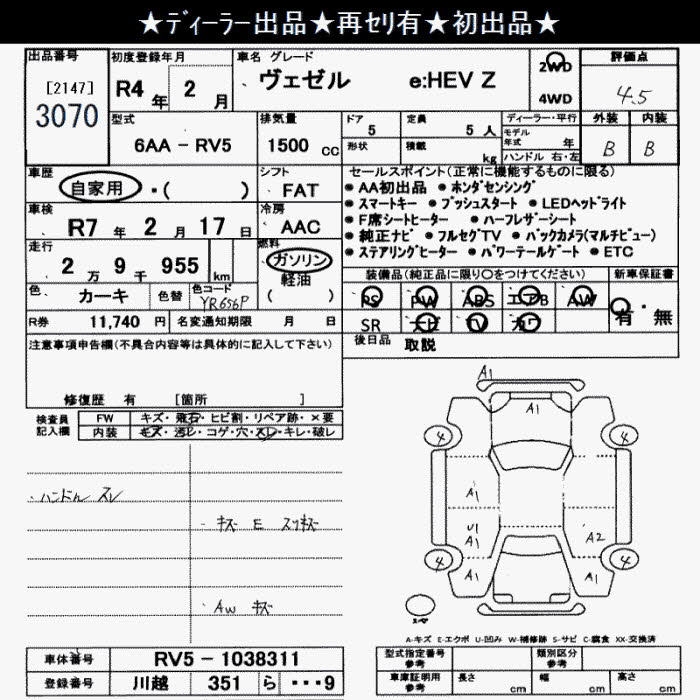 ★ディーラー出品★再セリ有★初出品★
出品番号 初度登録年月 車名 グレード 評価点
[2147] R4年 2月 ヴェゼル e:HEV Z 2WD 4.5
3070 4WD
型式 排気量 ドア 定員 ディーラー・平行 外装 内装
6AA - RV5 1500 cc 5 5人 モデル年式 年 B B
形状 積載 kg ハンドル 右・左
車歴 シフト セールスポイント(正常に機能するものに限る)
自家用 ・( ) FAT ● AA初出品 ● ホンダセンシング
車検 冷房 ● スマートキー ● プッシュスタート ● LEDヘッドライト
R7年 2月 17日 AAC ● F席シートヒーター ● ハーフレザーシート
走行 燃料 ● 純正ナビ ● フルセグTV ● バックカメラ(マルチビュー)
2万 9千 955 km ガソリン ● ステアリングヒーター ● パワーテールゲート ● ETC
軽油 装備品(純正品に限り○をつけてください) 新車保証書
色 カーキ 色替 色コード YR656P ( ) PS PW ABS エアB AW 有・無
R券 11,740 円 名変通知期限 月 日 SR ナビ TV カワ
注意事項申告欄(不具合内容等は具体的に記入して下さい) 後日品 取説
修復歴 有 [箇所 ]
検査員記入欄 FW キズ・飛石・ヒビ割・リペア跡・×要
内装 キズ・汚レ・コゲ・穴・スレ・キレ・破レ
A1
A1
4 4
ハンドル スレ A1
キズ E スリキズ U1
A1 A2
4 4
A1 A1
AW キズ
スペア
A-キズ E-エクボ U-凹み W-補修跡 S-サビ C-腐食 XX-交換済
車体番号 RV5 - 1038311 型式指定番号 参考 類別区分 参考
登録番号 川越 351 ら ・・・9 車庫証明用 参考 長さ cm 幅 cm 高さ cm